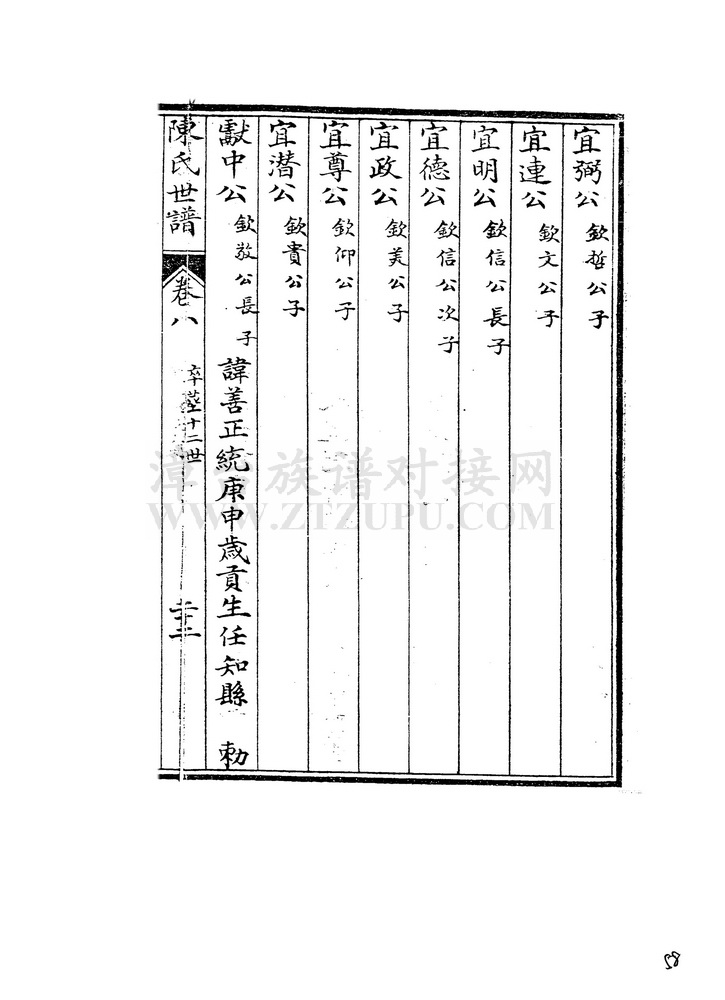 宜弼公 欽哲公子
宜連公 欽文公子
宜明公 欽信公長子
宜德公 欽信公次子
宜政公 欽美公子
宜尊公 欽仰公子
宜潛公 欽貴公子
獻中公 欽敬公長子 諱善正統庚申歲貢生任知縣 勅
陳氏世譜 卷八 十二世
漳台族谱对接网
WWW.ZTZUPU.COM
58